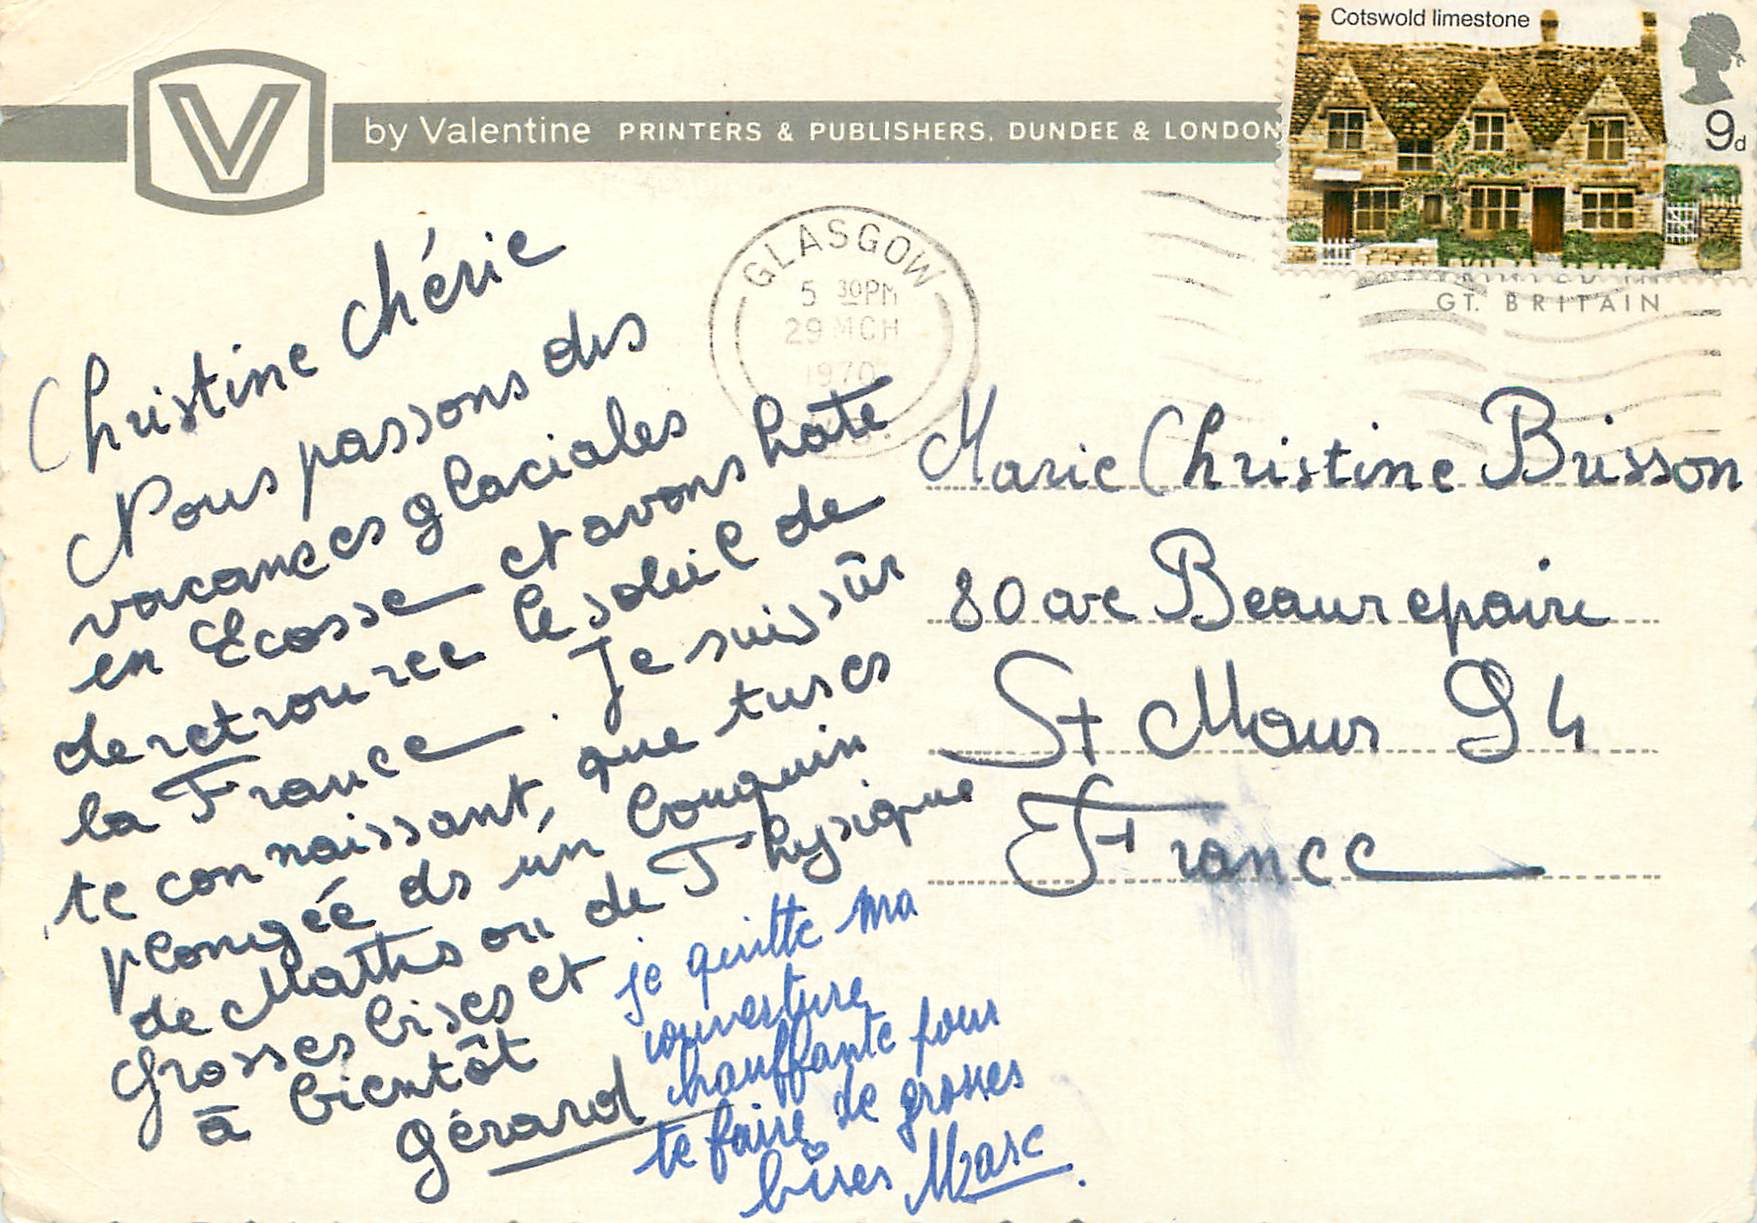 V
by Valentine PRINTERS & PUBLISHERS, DUNDEE & LONDON
Cotswold limestone
9d
GLASGOW
5 30PM
29 MCH
1970
GT. BRITAIN
Christine chérie
Nous passons des
vacances glaciales
en Ecosse et avons hate
de retrouver le soleil de
la France. Je suis sûr
te connaissant, que tu es
plongée ds un bouquin
de Maths ou de Physique
Grosses bises et
à bientôt
Gérard
je quitte ma
couverture
chauffante pour
te faire de grosses
bises Marc.
Marie Christine Brisson
80 ave Beaurepaire
St Maur 94
France